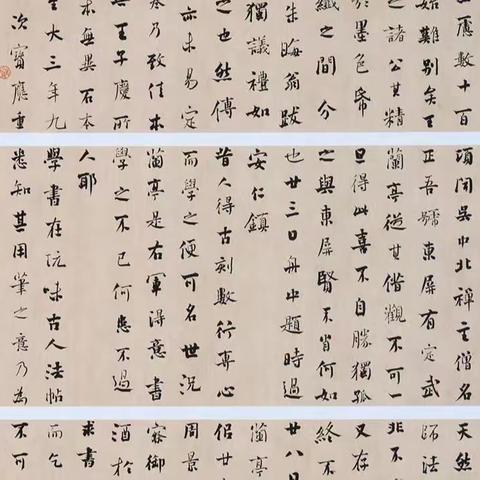 慮數十百
始難別矣王
之諸公其精
於墨色紙
纖之間分
朱晦翁跋
獨議禮如
之也然傳
亦未易定
卷乃致佳本
與王子慶所
本無異石本
至大三年九
次寶應重
頃聞吳中北禪主僧名
正吾號東屏有定武
蘭亭從其借觀不可一
旦得此喜不自勝獨孤
之與東屏賢不肖何如
也廿三日舟中題時過
安仁鎮
昔人得古刻數行專心
而學之便可名世況
蘭亭是右軍得意書
學之不已何患不過
人耶
學書在玩味古人法帖
悉知其用筆之意乃為
天然
師法
非不
又存
終不
廿八日
蘭亭
侶廿
周景
察御
酒於
求書
而乞
不可